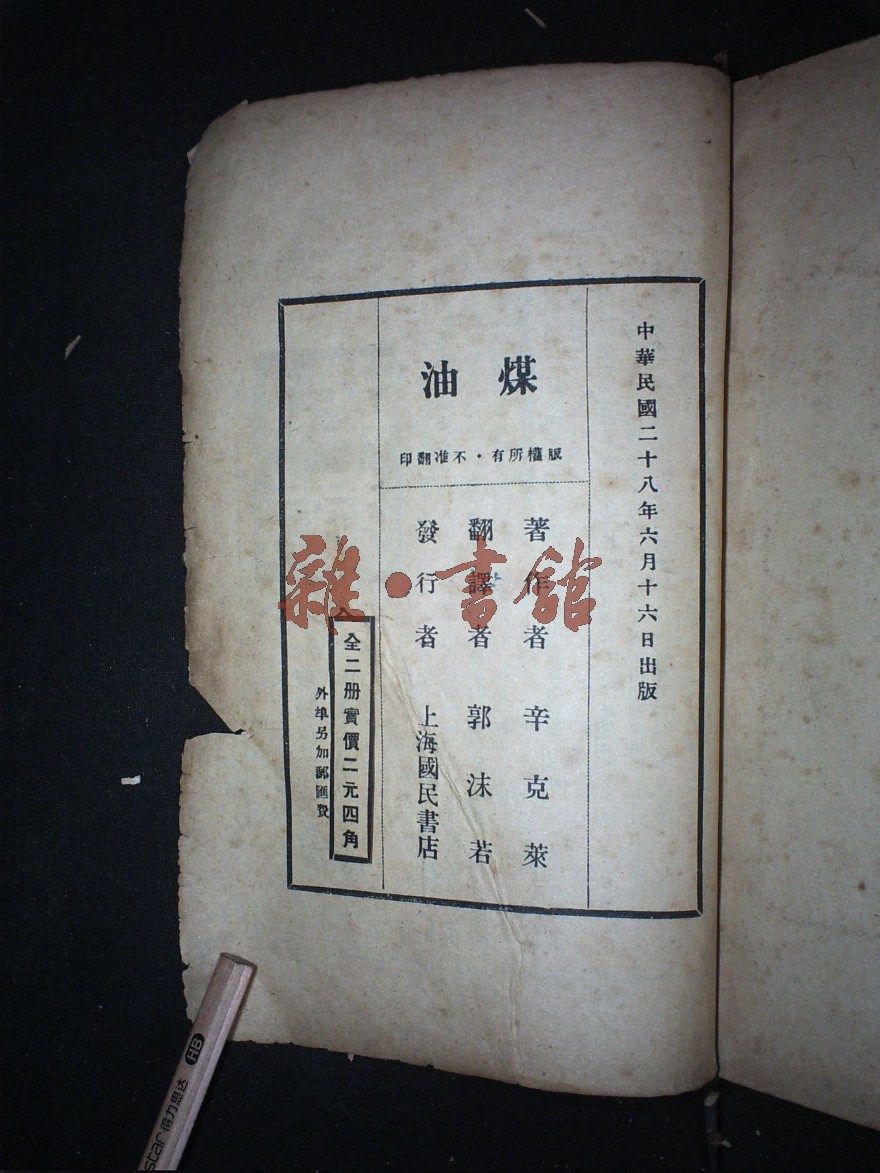 中華民國二十八年六月十六日出版
煤油
版權所有・不准翻印
著作者 辛克萊
翻譯者 郭沫若
發行者 上海國民書店
全二册實價二元四角
外埠另加郵匯費
雜・書館
star得力思达 HB